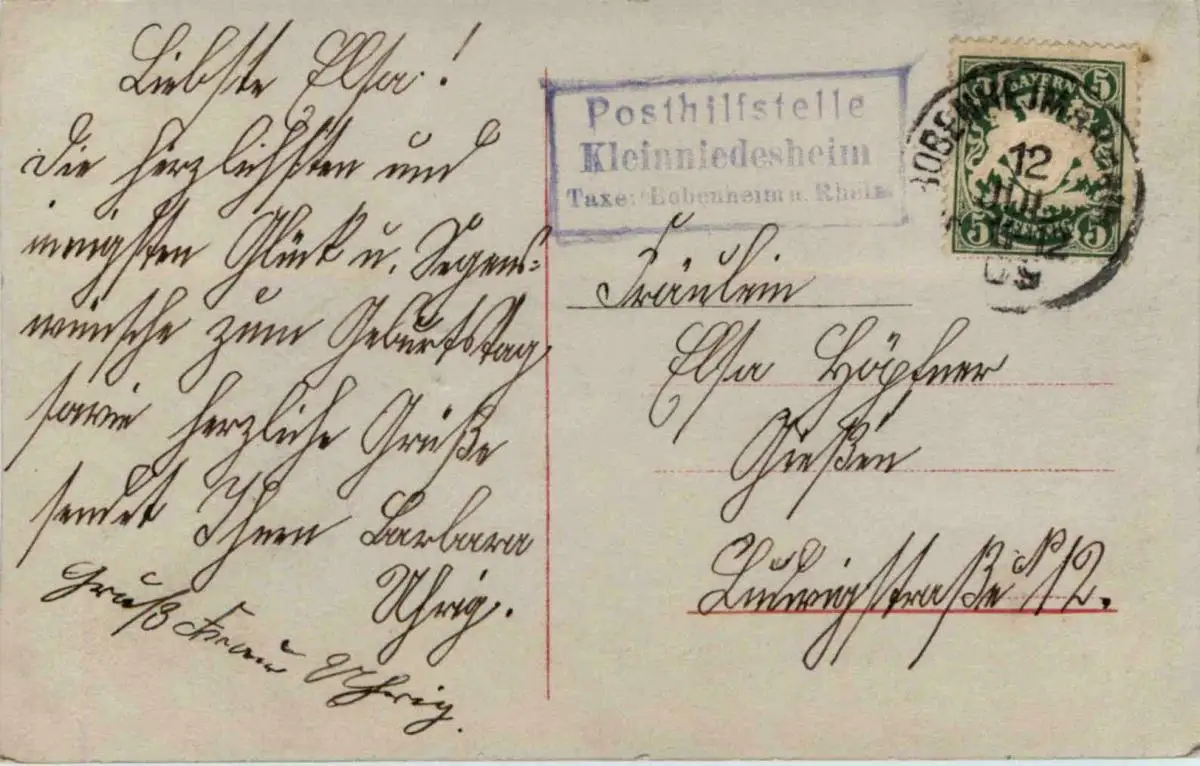 Liebste Elsa!
Die herzlichsten und
innigsten Glück u. Segens=
wünsche zum Geburtstag,
sowie herzliche Grüße
sendet Ihnen Barbara
Uhrig.
Gruß Frau Uhrig.
Posthilfstelle
Kleinniedesheim
Taxe: Bobenheim a. Rhein
BAYERN
5 5
5 5
BOBENHEIM A. RHEIN
12
JUL
09
Fräulein
Elsa Höpfner
Gießen
Ludwigstraße N 12.